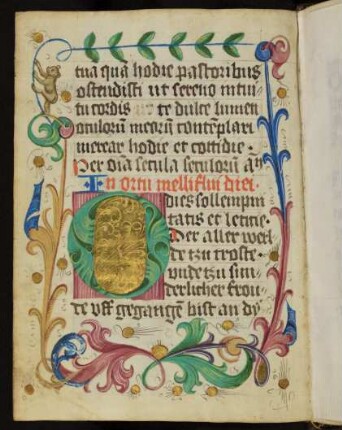 tua quā hodie pastoribus
ostendisti ut sereno intui-
tu cordis te dulce lumen
oculorū meorū contēplari
merear hodie et cottidie.
Per oīa secula seculorū
In ortu melliflui diei.
Dies sollempni
tatis et leticie.
Der aller welt
de tzu troste.
vnde tzu sun-
derlicher frou-
de vff gegangē bist an dy